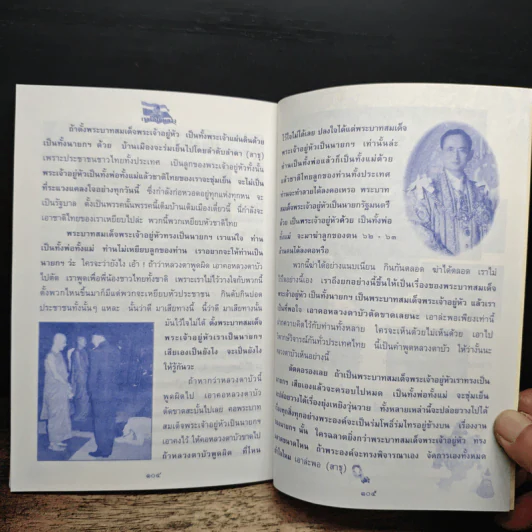 ถ้าตั้งพระบาทสมเด็จพระเจ้าอยู่หัว เป็นทั้งพระเจ้าแผ่นดินด้วย
เป็นทั้งนายกฯ ด้วย บ้านเมืองจะร่มเย็นไปโดยลำดับลำดา (สาธุ)
เพราะประชาชนชาวไทยทั้งประเทศ เป็นลูกของพระเจ้าอยู่หัวทั้งนั้น
พระเจ้าอยู่หัวเป็นทั้งพ่อทั้งแม่แล้วชาติไทยของเราจะชุ่มเย็น จะไม่เป็น
ที่ระแวงแคลงใจอย่างทุกวันนี้ ซึ่งกำลังก่อหวอดอยู่ทุกแห่งทุกหน จะ
เป็นรัฐบาล ตั้งเป็นพรรคนั้นพรรคนี้เต็มบ้านเต็มเมืองเดี๋ยวนี้ นี่กำลังจะ
เอาชาติไทยของเราเหยียบไปล่ะ พวกนี้พวกเหยียบหัวชาติไทย
พระบาทสมเด็จพระเจ้าอยู่หัวทรงเป็นนายกฯ เราแน่ใจ ท่าน
เป็นทั้งพ่อทั้งแม่ ท่านไม่เหยียบลูกของท่าน เราอยากจะให้ท่านเป็น
นายกฯ ว่ะ ใครจะว่ายังไง เอ้า ! ถ้าว่าหลวงตาพูดผิด เอาคอหลวงตาบัว
ไปตัด เราพูดเพื่อพี่น้องชาวไทยทั้งชาติ เพราะเราไม่ไว้วางใจกับพวกนี้
ตั้งพวกไหนขึ้นมาก็มีแต่พวกจะเหยียบหัวประชาชน กินตับกินปอด
ประชาชนทั้งนั้นๆ แหละ นั้นว่าดี มาเสียทางนี้ นี้ว่าดี มาเสียทางนั้น
มันไว้ใจไม่ได้ ตั้งพระบาทสมเด็จ
พระเจ้าอยู่หัวเราเป็นนายกฯ
เสียเองเป็นยังไง จะเป็นยังไง
ให้รู้กันวะ
ถ้าหากว่าหลวงตาบัวนี้
พูดผิดไป เอาคอหลวงตาบัว
ตัดขาดสะบั้นไปเลย คอพระบาท
สมเด็จพระเจ้าอยู่หัวเป็นนายกฯ
เอาคงไว้ ให้คอหลวงตาบัวขาดไป
ถ้าหลวงตาบัวพูดผิด ที่ไหน
๑๐๔
ไว้ใจไม่ได้เลย ปลงใจได้แต่พระบาทสมเด็จ
พระเจ้าอยู่หัวเป็นนายกฯ เท่านั้นล่ะ
ท่านเป็นทั้งพ่อแล้วก็เป็นทั้งแม่ด้วย
แล้วชาติไทยลูกของท่านทั้งประเทศ
พระบาท
สมเด็จพระเจ้าอยู่หัวเป็นนายกรัฐมนตรี
ด้วย เป็นพระเจ้าอยู่หัวด้วย เป็นทั้งพ่อ
ทั้งแม่ จะมาฆ่าลูกของตน ๖๒ - ๖๓
ล้านคนได้ลงคอหรือ
พวกนี้ฆ่าได้อย่างแนบเนียน กินกันตลอด ฆ่าได้ตลอด เราไม่
ไว้ใจอย่างนี้เอง เราถึงยกอย่างนี้ขึ้นให้เป็นเรื่องของพระบาทสมเด็จ
พระเจ้าอยู่หัว เป็นทั้งนายกฯ เป็นพระบาทสมเด็จพระเจ้าอยู่หัว แล้วเรา
เอาคอหลวงตาบัวตัดขาดเลยนะ เอาล่ะพอเพียงเท่านี้
ให้กับท่านทั้งหลาย ใครจะเห็นด้วยไม่เห็นด้วย เอาไป
วิพากษ์วิจารณ์กันทั่วประเทศไทย นี้เป็นคำพูดหลวงตาบัว ให้ว่างั้นนะ
หลวงตาบัวเห็นอย่างนี้
ตัดคอรองเลย ถ้าเป็นพระบาทสมเด็จพระเจ้าอยู่หัวเราทรงเป็น
นายกฯ เสียเองแล้วจะครอบไปหมด เป็นทั้งพ่อทั้งแม่ จะชุ่มเย็น
ได้เรื่องยุ่งเหยิงวุ่นวาย ทั้งหลายเหล่านี้จะปล่อยวางไปได้
ทุกสิ่งทุกอย่างพระองค์จะเป็นร่มโพธิ์ร่มไทรอยู่ข้างบน เรื่องงาน
นายกฯ นั้น ใครฉลาดยิ่งกว่าพระบาทสมเด็จพระเจ้าอยู่หัว ทรง
ฉลาดขนาดไหน ถ้าพระองค์จะทรงพิจารณาเอง จัดการเองทั้งหมด
เอาล่ะพอ (สาธุ)
๑๐๕